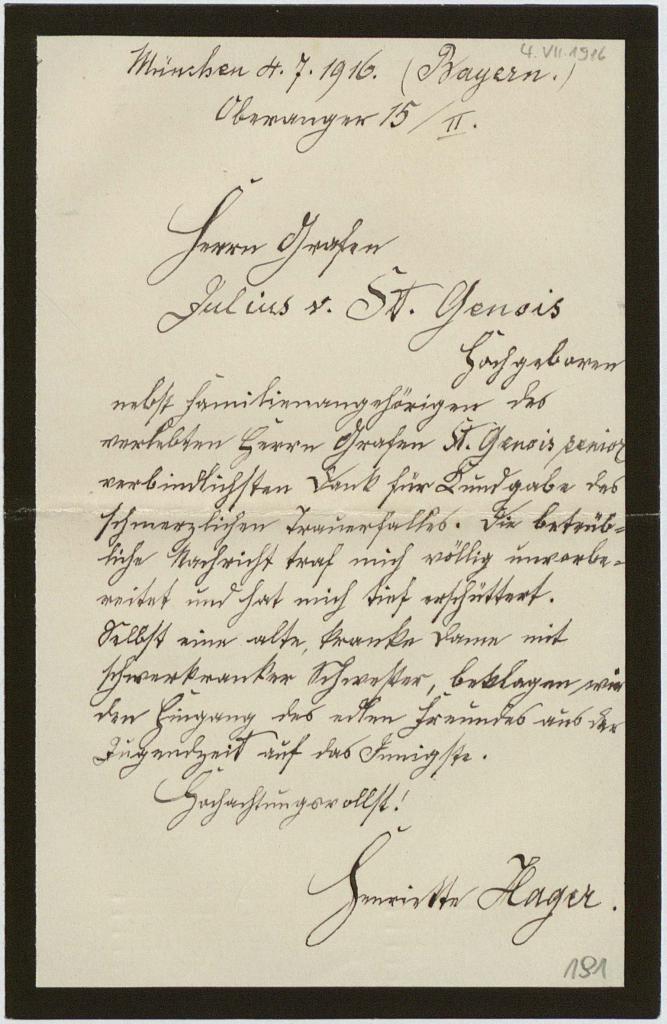 4. VII. 1916
München 4. 7. 1916. (Bayern.)
Oberanger 15/II.
Herrn Grafen
Julius v. St. Genois
Hochgeboren
nebst Familienangehörigen des
verlebten Herrn Grafen St. Genois senior
verbindlichsten Dank für Kundgabe des
schmerzlichen Trauerfalles. Die betrüb-
liche Nachricht traf mich völlig unvorbe-
reitet und hat mich tief erschüttert.
Selbst eine alte, kranke Dame mit
schwerkranker Schwester, beklagen wir
den Hingang des edlen Freundes aus der
Jugendzeit auf das Innigste.
Hochachtungsvollst!
Henriette Hager.
191